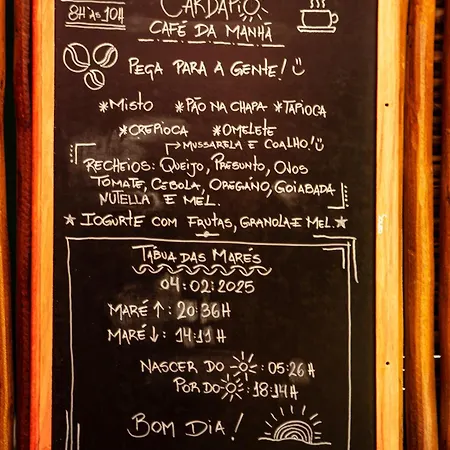 CARDÁPIO
8H ÀS 10H
CAFÉ DA MANHÃ
PEÇA PARA A GENTE!
*MISTO *PÃO NA CHAPA *TAPIOCA
*CREPIOCA *OMELETE
MUSSARELA E COALHO!
RECHEIOS: QUEIJO, PRESUNTO, OVOS
TOMATE, CEBOLA, OREGÁNO, GOIABADA
NUTELLA E MEL.
★ IOGURTE COM FRUTAS, GRANOLA E MEL. ★
TÁBUA DAS MARÉS
04:02:2025
MARÉ ↑: 20:36H
MARÉ ↓: 14:11H
NASCER DO : 05:26H
POR DO : 18:14H
BOM DIA!